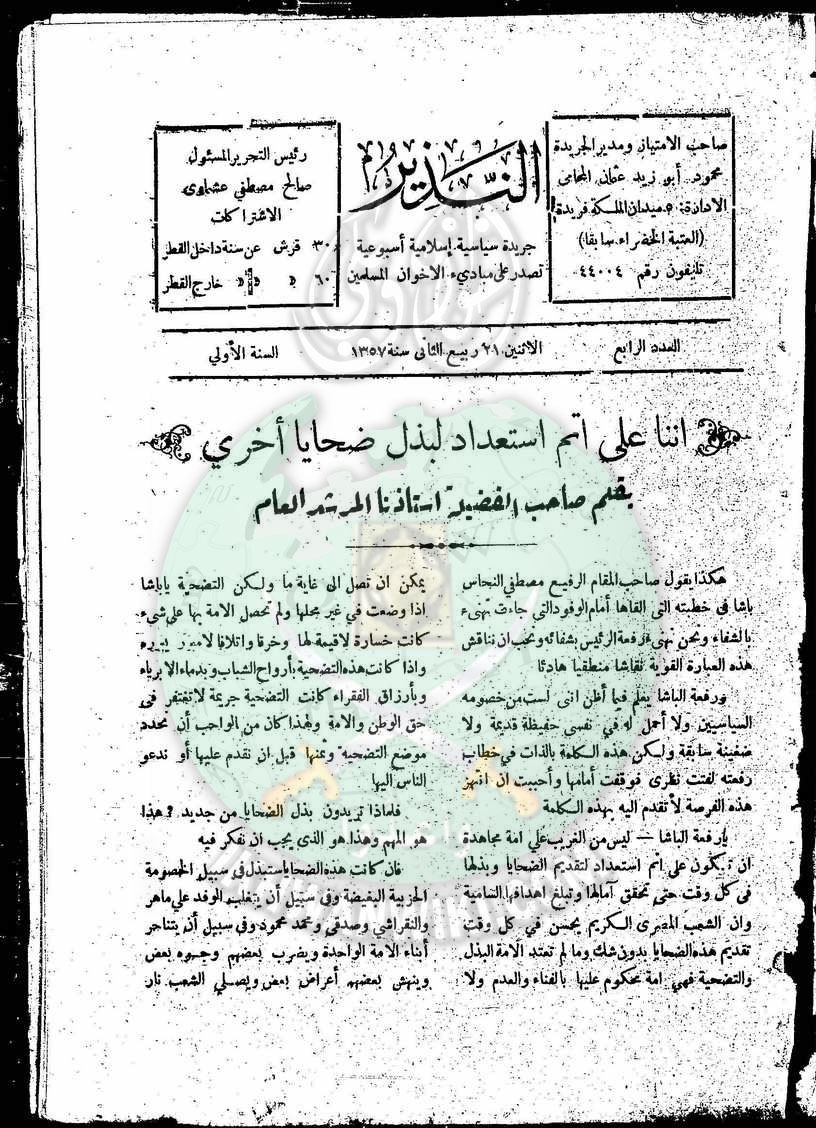 صاحب الامتياز ومدير الجريدة
محمود أبو زيد عثمان المحامى
الادارة: ٥ ميدان الملكة فريدة
(العتبة الخضراء سابقا)
تليفون رقم ٤٤٠٠٤
النذير
جريدة سياسية إسلامية أسبوعية
تصدر على مباديء الاخوان المسلمين
رئيس التحرير المسئول
صالح مصطفي عشماوى
الاشتراكات
٣٠ قرش عن سنة داخل القطر
٦٠ » » » خارج القطر
العدد الرابع
الاثنين ٢١ ربيع الثانى سنة ١٣٥٧
السنة الأولي
اننا على اتم استعداد لبذل ضحايا أخري
بقلم صاحب الفضيلة استاذنا المرشد العام
هكذا يقول صاحب المقام الرفيع مصطفي النحاس
باشا فى خطبته التى القاها أمام الوفود التي جاءت تهنىء
بالشفاء ونحن نهنىء رفعة الرئيس بشفائه ونحب ان نناقش
هذه العبارة القوية نقاشا منطقيا هادئا
ورفعة الباشا يعلم فيما أظن انى لست من خصومه
السياسيين ولا أحمل له في نفسى حفيظة قديمة ولا
ضغينة سابقة ولكن هذه الكلمة بالذات في خطاب
رفعته لفتت نظرى فوقفت أمامها وأحببت ان انتهز
هذه الفرصة لأتقدم اليه بهذه الكلمة
يارفعة الباشا — ليس من الغريب علي امة مجاهدة
ان تكون على اتم استعداد لتقديم الضحايا وبذلها
فى كل وقت حتى تحقق آمالها وتبلغ اهدافها السامية
وان الشعب المصرى الكريم يحسن في كل وقت
تقديم هذه الضحايا بدون شك وما لم تعتد الامة البذل
والتضحية فهي امة محكوم عليها بالفناء والعدم ولا
يمكن ان تصل الى غاية ما ولكن التضحية ياباشا
اذا وضعت في غير محلها ولم تحصل الامة بها على شىء
كانت خسارة لاقيمة لها وخرقا واتلافا لامبرر
واذا كانت هذه التضحية بأرواح الشباب وبدماء الابرياء
وبأرزاق الفقراء كانت التضحية جريمة لاتغتفر فى
حق الوطن والامة ولهذا كان من الواجب أن نحدد
موضع التضحية وثمنها قبل ان نقدم عليها أو ندعو
الناس اليها
فلماذا تريدون بذل الضحايا من جديد ؟ هذا
هو المهم وهذا هو الذى يجب ان نفكر فيه
فان كانت هذه الضحايا ستبذل في سبيل الخصومة
الحزبية البغيضة وفى سبيل أن يتغلب الوفد علي ماهر
والنقراشي وصدقي ومحمد محمود وفي سبيل أن يتناحر
أبناء الامة الواحدة ويضرب بعضهم وجوه بعض
وينهش بعضهم أعراض بعض ويصلي الشعب نار